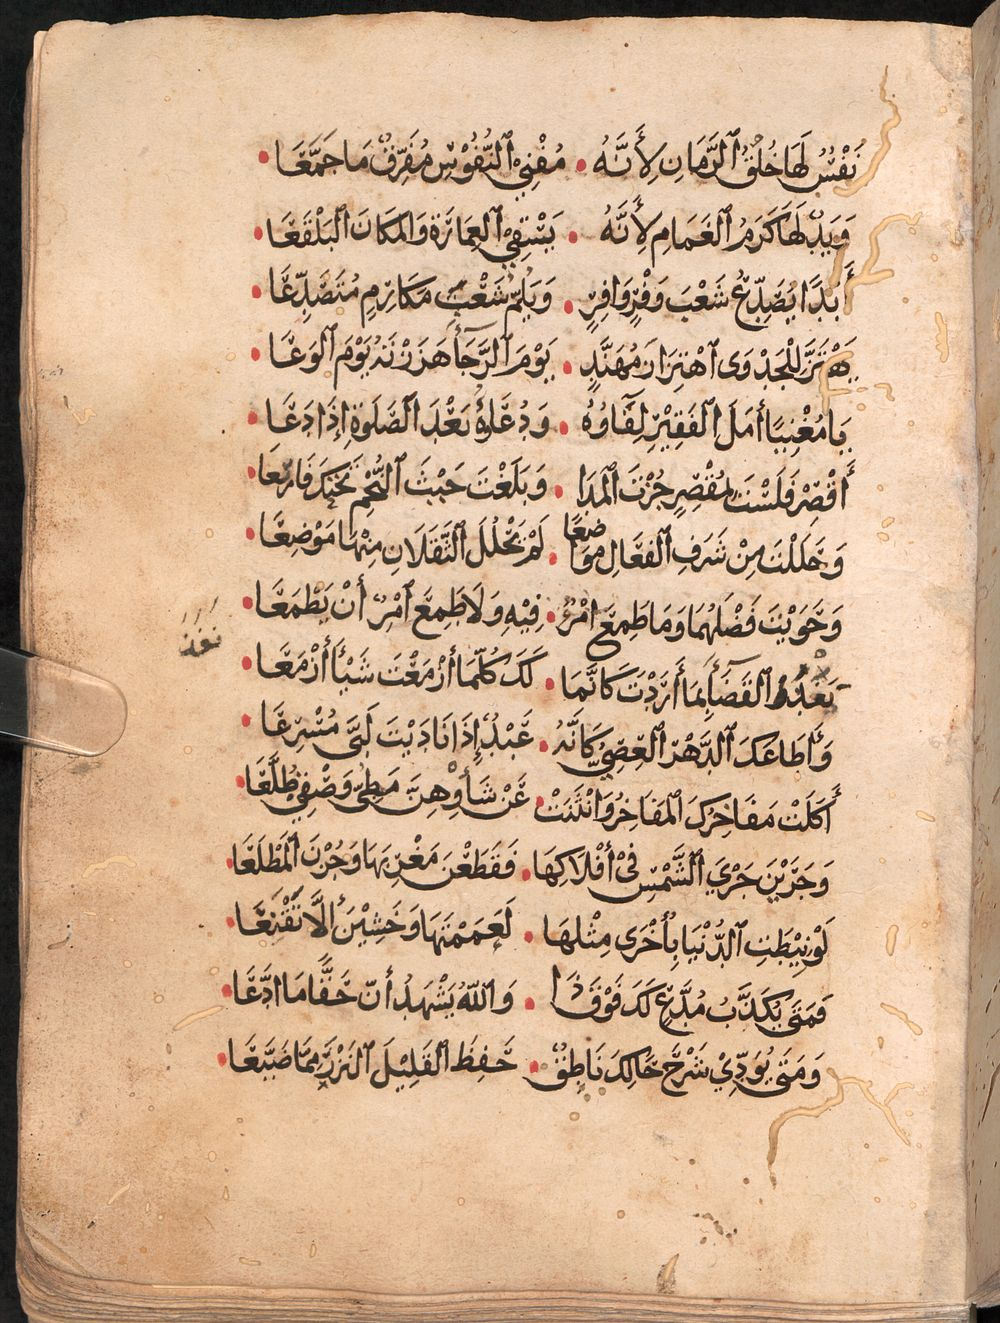 نَفْسٌ لَهَا خُلُقُ ٱلزَّمَانِ لِأَنَّهُ • مُفْنِيْ ٱلنُّفُوْسِ مُفَرِّقٌ مَا جَمَّعَا
وَيَدٌ لَهَا كَرَمُ ٱلغَمَامِ لِأَنَّهُ • يَسْقِيْ ٱلعِمَارَةَ وَالمَكَانَ ٱلبَلْقَعَا
أَبَدًا يُصَدِّعُ شَعْبَ وَفْرٍ وَافِرٍ • وَيَلُمُّ شَعْبَ مَكَارِمٍ مُتَصَدِّعَا
يَهْتَزُّ لِلْجَدْوَى ٱهْتِزَازَ مُهَنَّدٍ • يَوْمَ ٱلرَّجَآءِ هَزَزْنَهُ يَوْمَ ٱلوَعَا
يَا مُغْنِيًا أَمَلَ ٱلفَقِيْرِ لِقَآؤُهُ • وَدُعَآؤُهُ بَعْدَ ٱلصَّلَوةِ إِذَا دَعَا
أَقْصِرْ فَلَسْتَ بِمُقْصِرٍ جُزْتَ ٱلْمَدَا • وَبَلَغْتَ حَيْثُ ٱلنَّجْمُ تَحْتَكَ فَارْبَعَا
وَحَلَلْتَ مِنْ شَرَفِ ٱلفَعَالِ مَوَاضِعًا • لَمْ يَحْلُلِ ٱلثَّقَلَانِ مِنْهَا مَوْضِعَا
وَحَوَيْتَ فَضْلَهُمَا وَمَا طَمِعَ امْرُؤٌ • فِيْهِ وَلَا طَمِعَ ٱمْرُؤٌ أَنْ يَطْمَعَا
نفذ
ٱلقَضَآءُ بِمَا أَرَدْتَ كَانَّمَا • لَكَ كُلَّمَا أَزْمَعْتَ شَيْئًا أَزْمَعَا
وَأَطَاعَكَ ٱلدَّهْرُ ٱلعَصِيُّ كَانَّهُ • عَبْدٌ إِذَا نَادَيْتَ لَبَّى مُسْرِعَا
أَكَلَتْ مَفَاخِرُكَ ٱلْمَفَاخِرَ وَانْثَنَتْ • عَنْ شَأْوِهِنَّ مَطِيُّ وَصْفِيْ ظُلَّعَا
وَجَرَيْنَ جَرْيَ ٱلشَّمْسِ فِيْ أَفْلَاكِهَا • فَقَطَعْنَ مَغْرِبَهَا وَجُزْنَ ٱلْمَطْلَعَا
لَوْ نِيْطَتِ ٱلدُّنْيَا بِأُخْرَى مِثْلِهَا • لَعَمَمْنَهَا وَخَشِيْنَ أَلَّا تَقْنَعَا
فَمَتَى يُكَذَّبُ مُدَّعٍ لَكَ فَوْقَ ذَا • وَٱللّٰهُ يَشْهَدُ أَنَّ حَقًّا مَا ادَّعَا
وَمَتَى يُؤَدِّيْ شَرْحَ حَالِكَ نَاطِقٌ • حَفِظَ ٱلقَلِيْلَ ٱلنَّزْرَ مِمَّا ضَيَّعَا